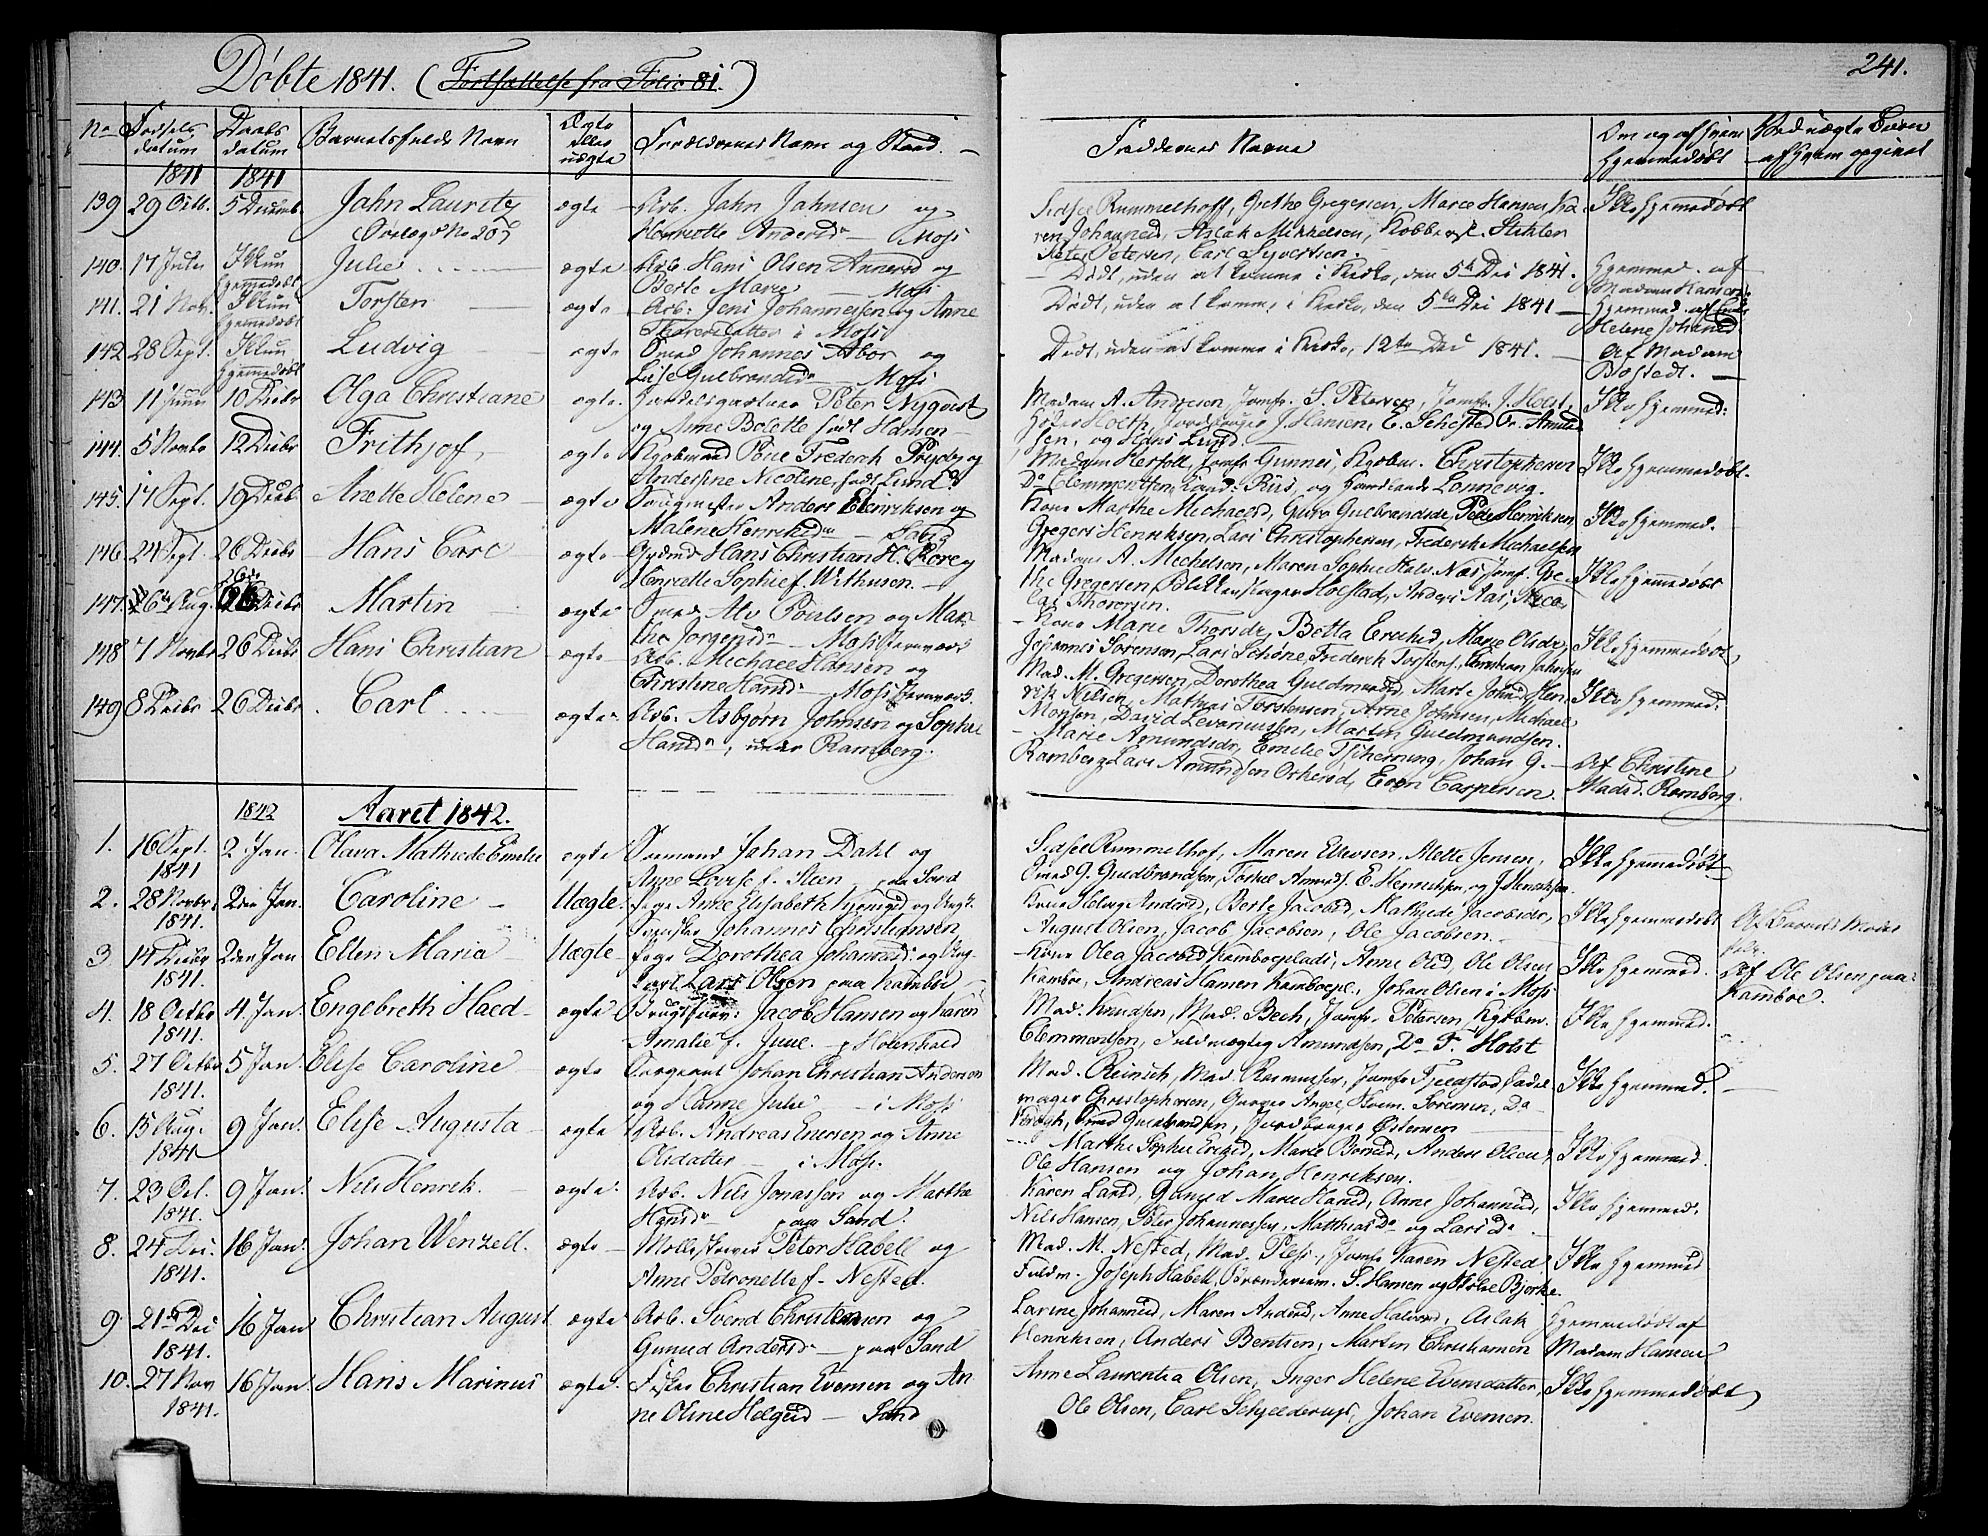 Døbte 1841. (Fortsættelse fra Folio 81.)
241.
No Fødsels datum Daabs datum Barnets fulde Navn Ægte eller uægte Forældrenes Navn og Stand.
Faddernes Navne Om og af hvem hjemmedøbt Ved uægte Børn af hvem opgivet
1841 1841
139 29 Octb. 5 Decemb. Jahn Lauritz ægte Arb. Jahn Jahnsen og
Henriette Andersd. – Moss
Sidsel Rummelhoff, Grethe Gregersen, Maren Hansen, Ka-
ren Johannesd, Aslak Mikkelsen, Kobbersl. Stikler
Peter Petersen, Carl Syvertsen. Ikke hjemmedøbt
140. 17 Julii Ikun hjemmedøbt Julie ægte Arb. Hans Olsen Annerød og
Berte Marie – Moss
Dødt, uden at komme i Kirke, den 5te Dec 1841. Hjemmed. af
Madam Hansen
141. 21 Nov. Ikun hjemmedøbt Torsten ægte Arb. Jens Johannessen og Anne
Thoresdatter i Moss
Dødt, uden at komme i Kirke, den 5te Dec 1841 Hjemmed. af
Helene Johansd
142 28 Sept. Ikun hjemmedøbt Ludvig ægte Smed Johannes Abor og
Lise Gulbrandsd. – Moss
Dødt, uden at komme i Kirke, 12te Dec 1841. Af Madam
Blostedt.
143 11 Juni 10 Decbr Olga Christiane ægte Peter Nyqvist
og Anne Bolette født Hansen
Madam A. Andresen, Jomfr. S. Petersen, Jomfr. J. Holst,
J. Hansen, E. Sehested, Fr. Amund
sen, og Hans Lund. Ikke hjemmed:
144. 5 Novbr 12 Decbr Frithjof ægte Kjøbmand Peter Frederik Prydz og
Andersine Nicoline, født Lund
Madam Herfoll, Jomfr Gunnes, Kjøbm. Christophersen
Do Clemmentsen, Cand: Riis og Handlende Lonnevig. Ikke hjemmedøbt.
145. 17 Sept. 19 Decb. Anette Helene ægte Anders Henriksen og
Malene Henriksd. – Sand
Kone Marthe Michaelsd, Guro Gulbrandsdr, Peder Henriksen,
Gregers Henriksen, Lars Christophersen, Frederik Michaelsen Ikke hjemmed.
146. 24 Sept. 26 Decbr Hans Carl ægte Hans Christian H. Rore og
Henriette Sophie f. Withusen.
Madam A. Mechelsen, Maren Sophie Næs, Jomf. Gre-
the Gregersen, Blikkenslager Holstad, Anders Aas,
Thoresen. Ikke hjemmedøbt
147. 26 Aug. 26 Decbr Martin ægte Smed Alv Poulsen og Mar-
the Jørgensd. – Moss Jernværk
Kone Marie Thorsdr, Betta Ericksd, Marie Olsdr,
Johannes Sørensen, Lars Schöne, Frederik Torstens, Christian Jahnsen Ikke hjemmedøbt
148 7 Novbr 26 Decbr Hans Christian ægte Arb. Michael Hansen og
Christine Hansd. – Moss Jernværk.
Mad. M. Gregersen, Dorothea Guldmundsd, Marte Johnsd, Hen-
rik Nilsen, Mathias Torstensen, Arne Johnsen, Michael
Monsen, David Levorniussen, Martin Guldmundsen. Ikke hjemmed.
149 8 Decbr 26 Decbr Carl ægte Arb. Asbjørn Johnsen og Sophie
Hansd., under Ramberg.
Marie Amundsdr, Emilie Tschernung, Johan G.
Ramberg, Lars Amundsen Orkerød, Even Caspersen. Af Christine
Madsd. Ramberg.
1842 Aaret 1842.
1. 16 Sept. 1841 2 Jan. Olava Mathilde Emilie ægte Formand Johan Dahl og
Anne Lovise f. Steen paa Sand
Sidsel Rummelhof, Maren Ellevsen, Mette Jensen,
Smed G. Guldbrandsen, Torkel Amunds, E. Henriksen, og J. Henriksen. Ikke hjemmedøbt
2. 28 Novbr. 1841. 2den Jan. Caroline Uægte. Pige Anne Elisabeth og Ungk.
Johannes Christiansen
Kone Helvig Andersd, Berte Jacobsd, Mathilde Jacobsdr,
August Olsen, Jacob Jacobsen, Ole Jacobsen. Ikke hjemmedøbt Af Barnets Moder
3 14 Decbr 1841. 2den Jan Ellen Maria Uægte Pige Dorothea Johannesd. og Ung-
karl Lars Olsen paa Kambo
Kone Olea Jacobsd Kamboeplads, Anne Olsd, Ole Olsen
Kamboe, Andreas Hansen Kamboepl., Johan Olsen i Moss Ikke hjemmed. Af Ole Olsen paa
Kamboe.
4. 18 Octbr 1841. 4 Jan. Engebreth Haed ægte Brugsforv: Jacob Hansen og Karen
Amalie f. Juul.
Mad. Knudsen, Mad. Bech, Jomfr. Petersen, Kjøbm.
Clemmentsen, Fuldmægtig Amundsen, Do F. Holst Ikke hjemmed.
5. 27 Octbr 1841. 5 Jan. Elise Caroline ægte Sergeant Johan Christian Andersen
og Hanne Julie – i Moss
Mad. Reinsch, Mad. Rasmussen, Jomfr Fjeldstad, Sadel
mager Christophersen, Garver Angel, Sørensen, Do
Østensen Ikke hjemmed.
6. 15 Aug. 1841 9 Jan. Elise Augusta ægte Arb. Andreas Evensen og Anne
Olsdatter i Moss.
Marthe Sophie Ericksd, Marie Boresd, Anders Olsen,
Ole Hansen og Johan Henriksen. Ikke hjemmed.
7. 23 Oct. 1841. 9 Jan. Nils Henrik. ægte. Arb. Nils Jonassen og Marthe
Hansdr paa Sand.
Karen Larsd, Gunild Marie Hansd, Anne Johannesd,
Nils Hansen, Peter Johannessen, Matthias Do og Lars Do Ikke hjemmed.
8. 24 Dec. 1841. 16 Jan. Johan Wenzell. ægte Peter Habell og
Anne Petronelle f. Nested.
Mad. M. Nested, Mad. Pless, Jomfr Karen Nested
Fuldm. Joseph Habell, S. Hansen og Bjerke. Ikke hjemmed
9. 21 Dec 1841. 16 Jan Christian August ægte Arb. Svend Christiansen og
Gunild Andersd. – paa Sand
Larine Johannesd, Maren Andersd, Anne Halvorsd, Aslak
Henriksen, Anders Bentsen, Martin Christiansen Hjemmedøbt af
Madam Hansen
10. 27 Nov 1841. 16 Jan Hans Marinus ægte. Fisker Christian Evensen og An
ne Oline Helgesd – Sand
Anne Laurentia Olsen, Inger Helene Evensdatter,
Ole Olsen, Carl Schjelderups, Johan Evensen. Ikke hjemmedøbt